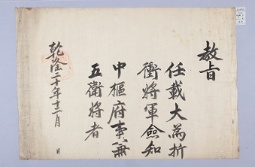 教旨
任載大爲折
衝將軍僉知
中樞府事兼
五衛將者
乾隆二十年十二月 日